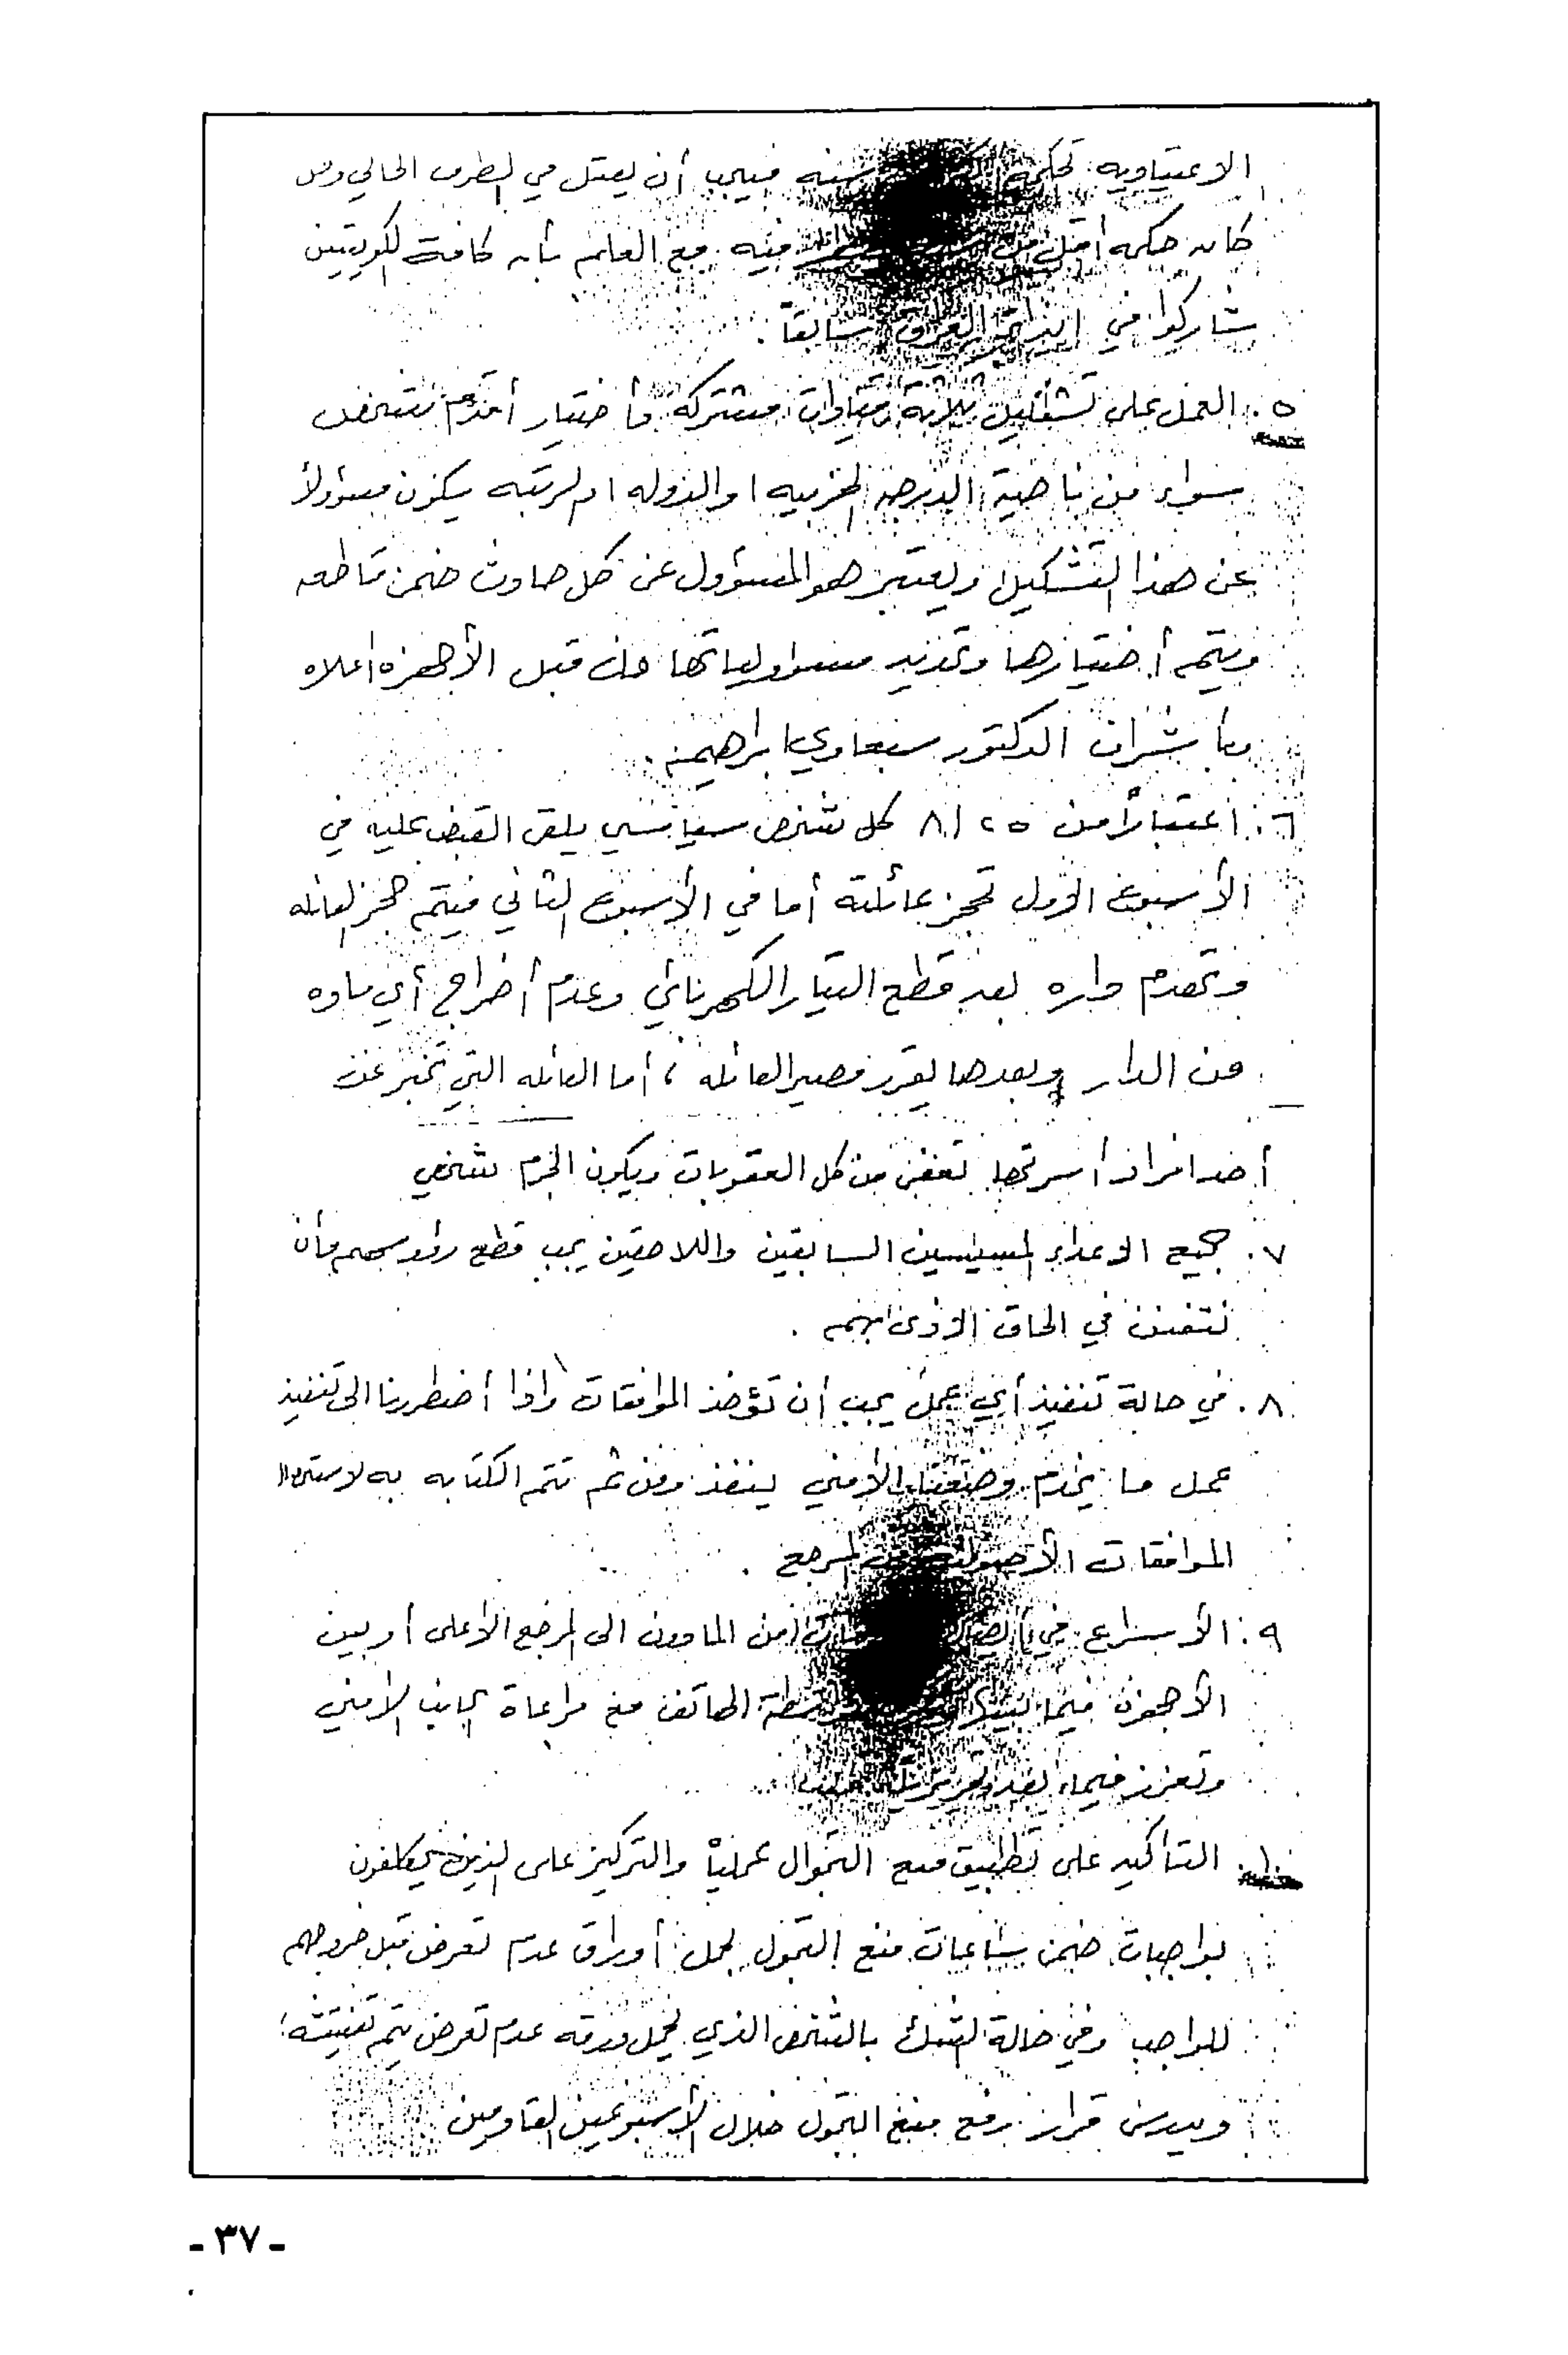 الاعتياديه تحكمه سنه فيجب أن يعتل في الظرف الحالي ومن
كان حكمه أقل من فيه مع العلم بأن كافة الكويتيين
شاركوا في ايذاء العراق سابقاً .
٥. العمل على تشكيل ثلاثة قيادات مشتركة وأختيار أقدم شخص
سواء من ناحية الدرجه الحزبيه او الدوله او الرتبه يكون مسؤولاً
عن هذا التشكيل ويعتبر هو المسؤول عن كل حادث ضمن قاطعه
ويتم أختيارها وتحديد مسؤولياتها من قبل الأجهزه اعلاه
وبأشراف الدكتور سبعاوي ابراهيم .
٦. اعتباراً من ٢٥ / ٨ كل شخص سياسي يلقى القبض عليه في
الأسبوع الأول تحجز عائلته أما في الأسبوع الثاني فيتم حجز العائله
وتهدم داره بعد قطع التيار الكهربائي وعدم أخراج أي ماده
من الدار وبعدها يقرر مصير العائله ، أما العائله التي تخبر عن
أحد افراد أسرتها تعفى من كل العقوبات ويكون الجرم شخصي
٧. جميع الاعداء السياسيين السابقين واللاحقين يجب قطع رؤوسهم وأن
نتفنن في الحاق الاذى بهم .
٨. في حالة تنفيذ أي عمل يجب أن تؤخذ الموافقات واذا أضطررنا الى تنفيذ
عمل ما يخدم وضعنا الأمني ينفذ ومن ثم تتم الكتابه به لاستحصال
الموافقات الأصولية من المرجع .
٩. الأسراع في من المادون الى المرجع الاعلى أو بين
الأجهزة فيما بينها بواسطة الهاتف مع مراعاة الجانب الامني
وتعزز فيما بعد
١٠. التأكيد على تطبيق منع التجوال عملياً والتركيز على الذين يكلفون
بواجبات ضمن ساعات منع التجول بحمل أوراق عدم تعرض قبل خروجهم
للواجب وفي حالة الشك بالشخص الذي يحمل ورقه عدم تعرض يتم تفتيشه
ويدرس قرار رفع منع التجول خلال الأسبوعين القادمين
- ٣٧ -